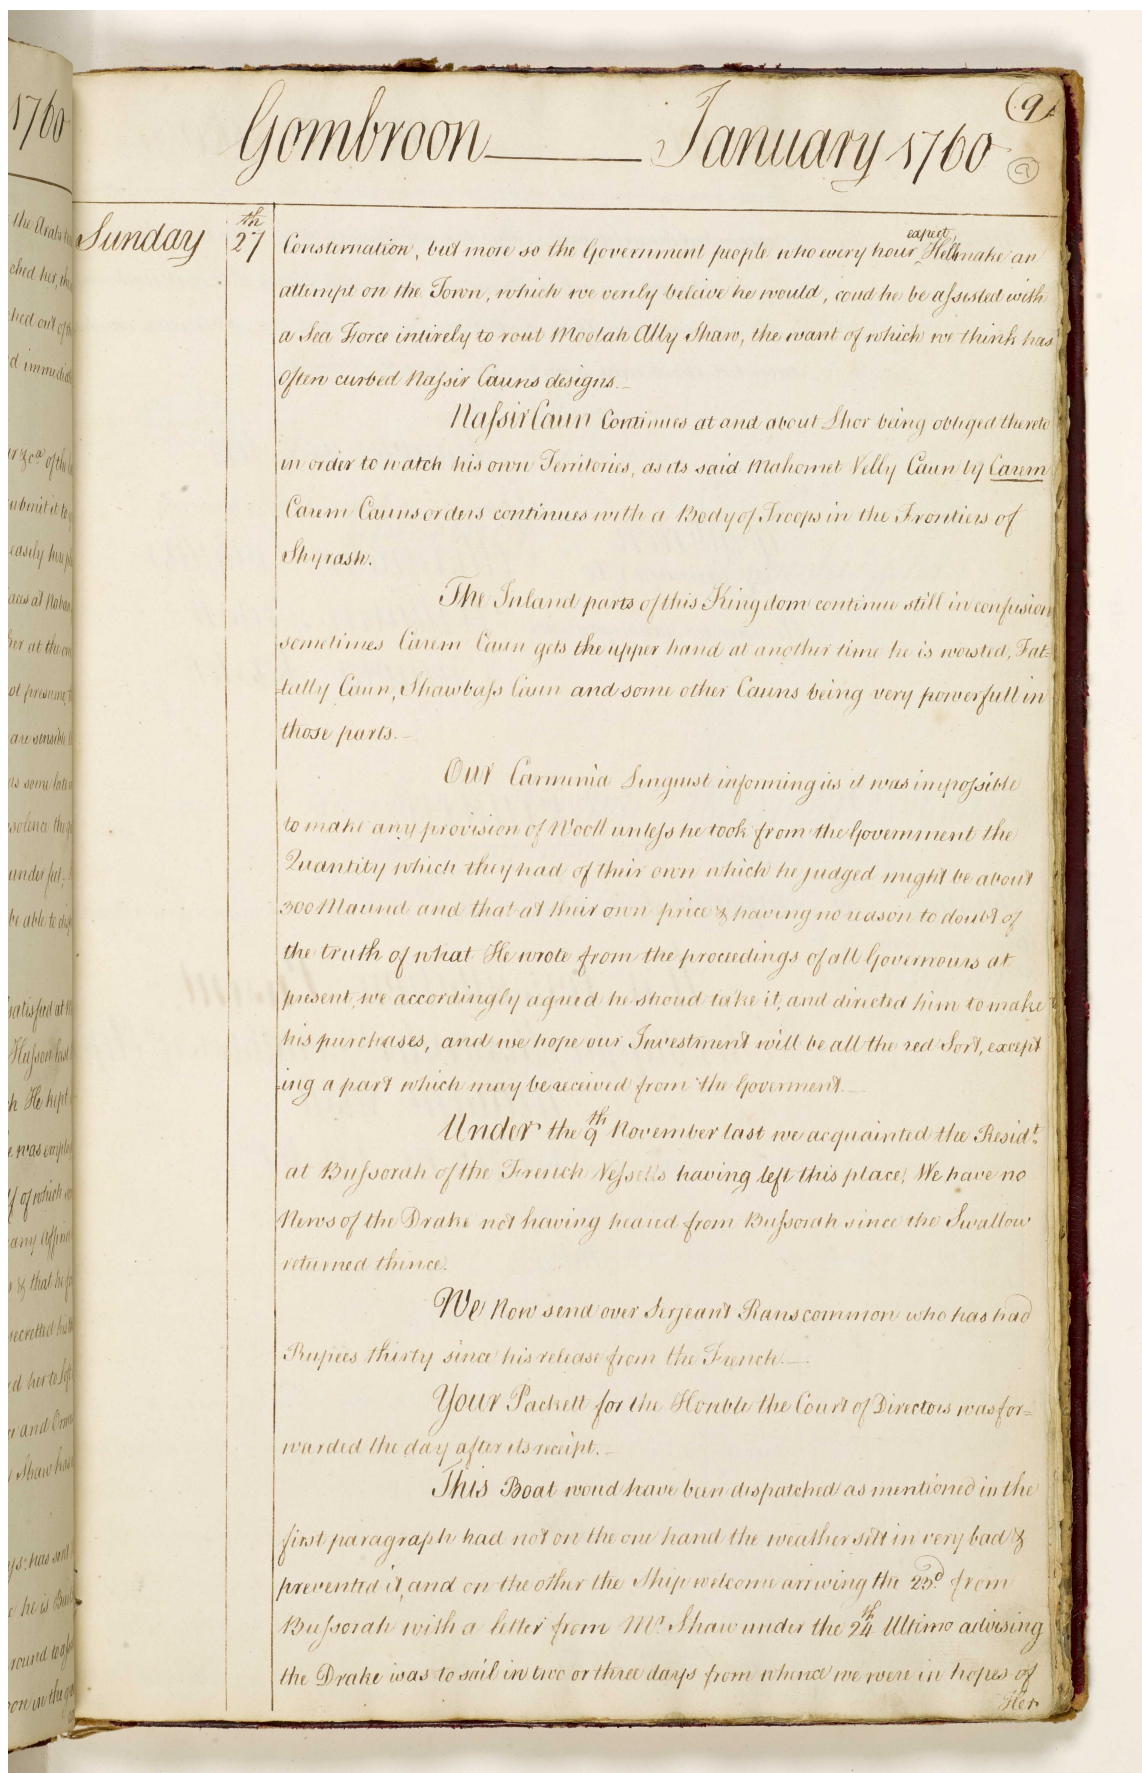 1760
(9)
Gombroon January 1760
(a)
Sunday 27th
Consternation, but more so the Government people who every hour expect, He'll make an
attempt on the Town, which we verily beleive he would, coud he be assisted with
a Sea Force intirely to rout Moolah Ally Shaw, the want of which we think has
Often curbed Nassir Cauns designs.
Nassir Caun Continues at and about Lhor being obliged thereto
in order to watch his own Territories, as its said Mahomet Velly Caun by Carem
Carem Cauns orders continues with a Body of Troops in the Frontiers of
Shyrash.
The Inland parts of this Kingdom continue still in confusion
sometimes Carem Caun gets the upper hand at another time he is worsted, Fat=
=tally Caun, Shawbass Caun and some other Cauns being very powerfull in
those parts.
Our Carmenia Linguist informing us it was impossible
to make any provision of Wooll unless he took from the Government the
Quantity which they had of their own which he judged might be about
300 Maund and that at their own price & having no reason to doubt of
the truth of what He wrote from the proceedings of all Governours at
present, we accordingly agreed he shoud take it, and directed him to make
his purchases, and we hope our Investment will be all the red Sort, except
=ing a part which may be received from the Goverment.
Under the 9th November last we acquainted the Residt.
at Bussorah of the French Vessells having left this place, We have no
News of the Drake not having heard from Bussorah since the Swallow
returned thince.
We Now send over Serjeant Ranscommon who has had
Rupees thirty since his release from the French.
Your Packett for the Honble the Court of Directors was for=
warded the day after its receipt.
This Boat woud have been dispatched as mentioned in the
first paragraph had not on the one hand the weather sett in very bad &
prevented it, and on the other the Ship welcome arriving the 23d. from
Bussorah with a letter from Mr. Shaw under the 24th Ultimo advising
the Drake was to sail in two or three days from whence we were in hopes of
Her